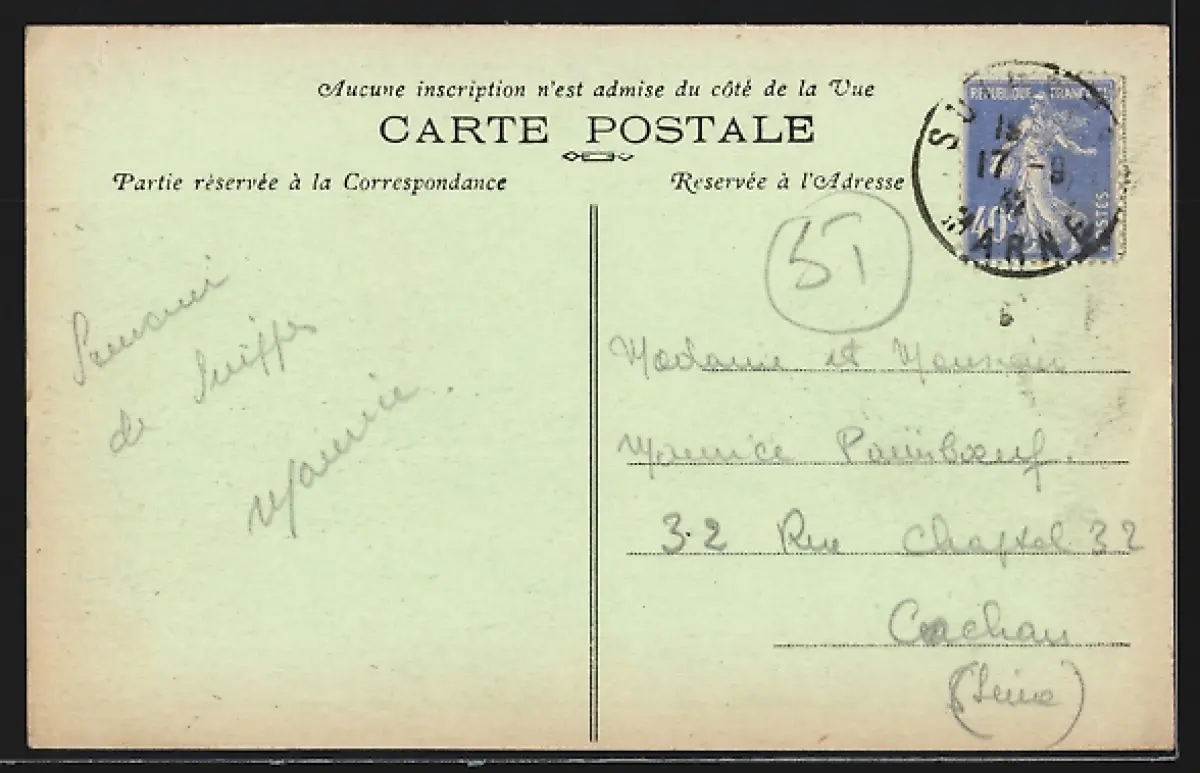 Aucune inscription n'est admise du côté de la Vue
CARTE POSTALE
Partie réservée à la Correspondance
Reservée à l'Adresse
REPUBLIQUE FRANÇAISE
SU
17 -9
40c
POSTES
MARNE
51
Souvenir
de Suippes
Maurice.
Madame et Monsieur
Maurice
32 Rue Chaptal 32
Cachan
(Seine)